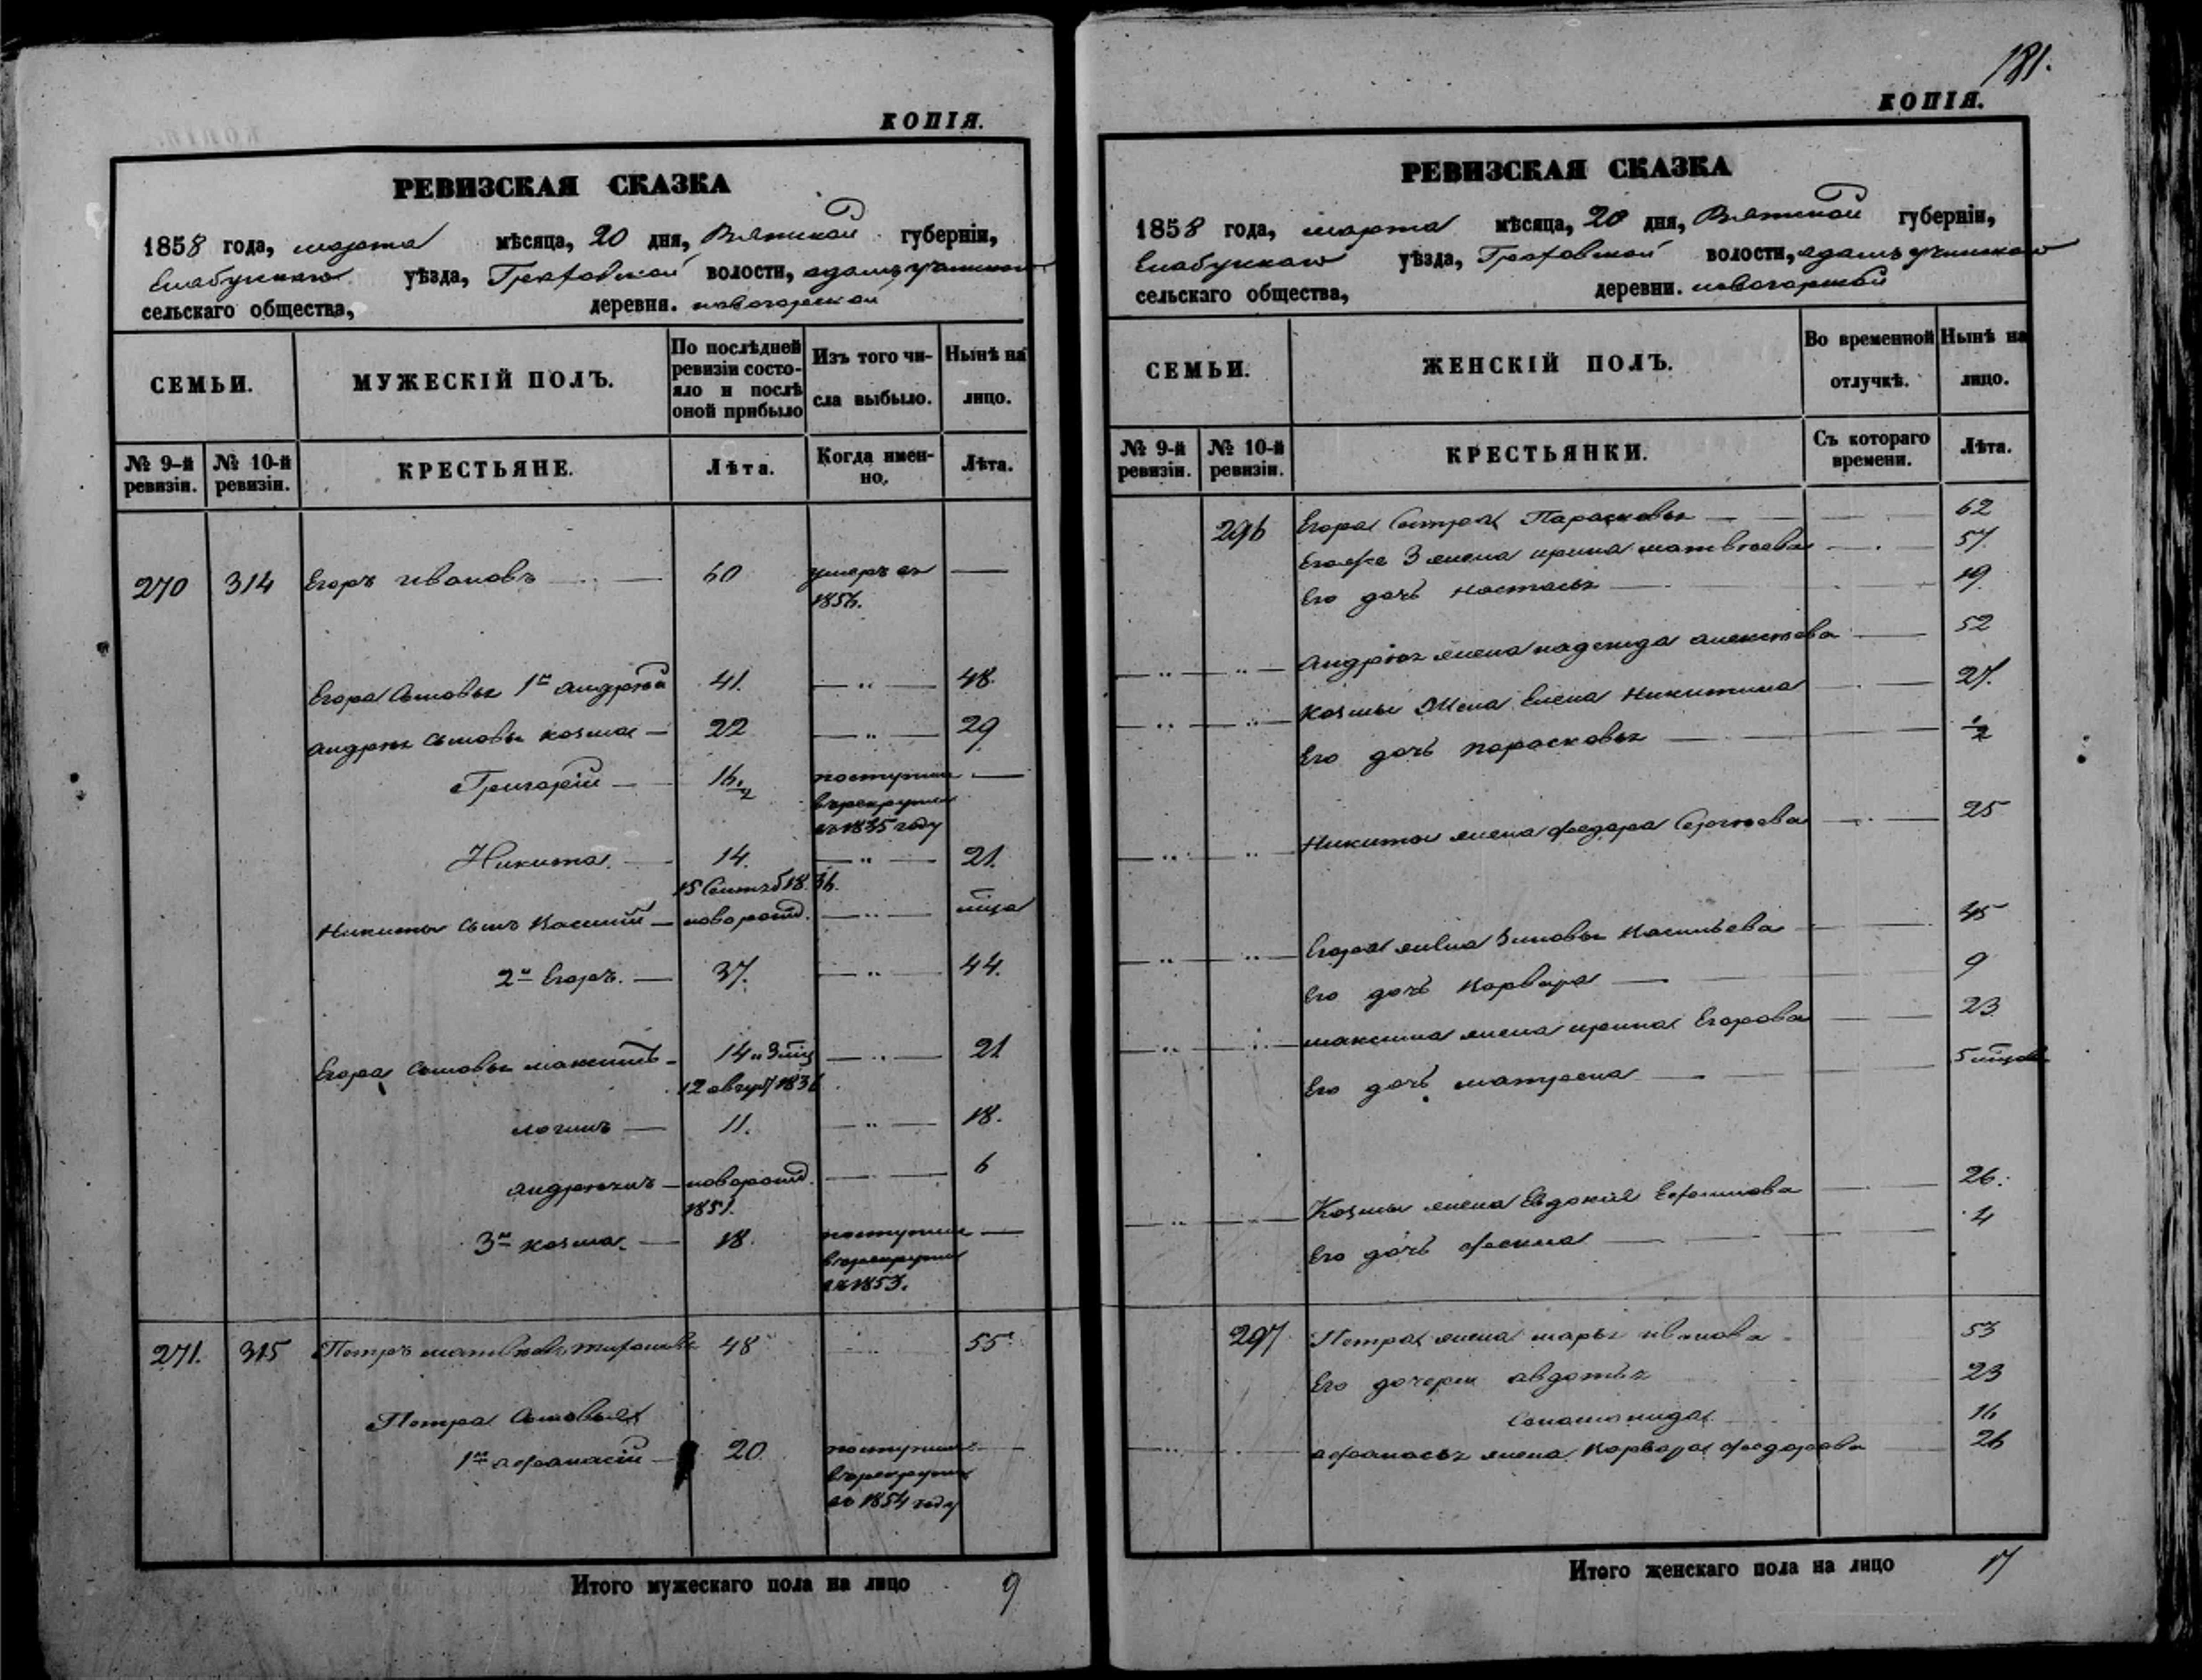 КОПІЯ.
РЕВИЗСКАЯ СКАЗКА
1858 года, марта мѣсяца, 20 дня, Вятской губерніи,
Елабускаго уѣзда, Граховской волости, адамъ учинскаго
сельскаго общества, деревня. новогорской
СЕМЬИ.
МУЖЕСКІЙ ПОЛЪ.
По послѣдней ревизіи состо-
яло и послѣ оной прибыло
Изъ того чи-
сла выбыло.
Нынѣ на
лицо.
№ 9-й ревизіи.
№ 10-й ревизіи.
КРЕСТЬЯНЕ.
Лѣта.
Когда имен-
но.
Лѣта.
270 314 Егоръ ивановъ 60 умеръ въ
1856.
Егора Сыновья 1й андрѣй 41. 48.
андрея сыновья козма 22 29
Григорій 16 1/2 поступилъ
в рекруты
въ 1855 году
Никита 14. 21.
15 Сентяб 18 36.
Никиты сынъ Василій новорожд. мѣца
2й Егоръ. 37. 44.
Егора сыновья максимъ 14 и 3 мѣц 21
12 август 1836
логинъ 11. 18.
андреянъ новорожд. 6
1851.
3й козма. 18. поступилъ
в рекруты
въ 1853.
271. 315 Петръ матвѣевъ 48 55
Петра Сыновья
1й афанасій 20 поступилъ
в рекруты
въ 1854 году
Итого мужескаго пола на лицо 9
181.
КОПІЯ.
РЕВИЗСКАЯ СКАЗКА
1858 года, марта мѣсяца, 20 дня, Вятской губерніи,
Елабускаго уѣзда, Граховской волости, адамъ учинскаго
сельскаго общества, деревни. новогорской
СЕМЬИ.
ЖЕНСКІЙ ПОЛЪ.
Во временной
отлучкѣ.
Нынѣ на
лицо.
№ 9-й ревизіи.
№ 10-й ревизіи.
КРЕСТЬЯНКИ.
Съ котораго
времени.
Лѣта.
296 Егора Сестра Парасковья 62
Егоже 3 жена ирина матвѣева 57.
Его дочь настасья 19.
андрея жена надежда алексѣева 52
козмы Жена Елена Никитина 27.
Его дочь парасковья 1/2
Никиты жена федора Сергѣева 25
Егора жена Зиновья Васильева 45
Его дочь Варвара 9
максима жена ирина Егорова 23
Его дочь матрена 5 мѣцов
Козмы жена Евдокия Ефимова 26.
Его дочь фекла 4
297 Петра жена марья иванова 53
Его дочери авдотья 23
Соломонида 16
афанасья жена Варвара федорова 26
Итого женскаго пола на лицо 17